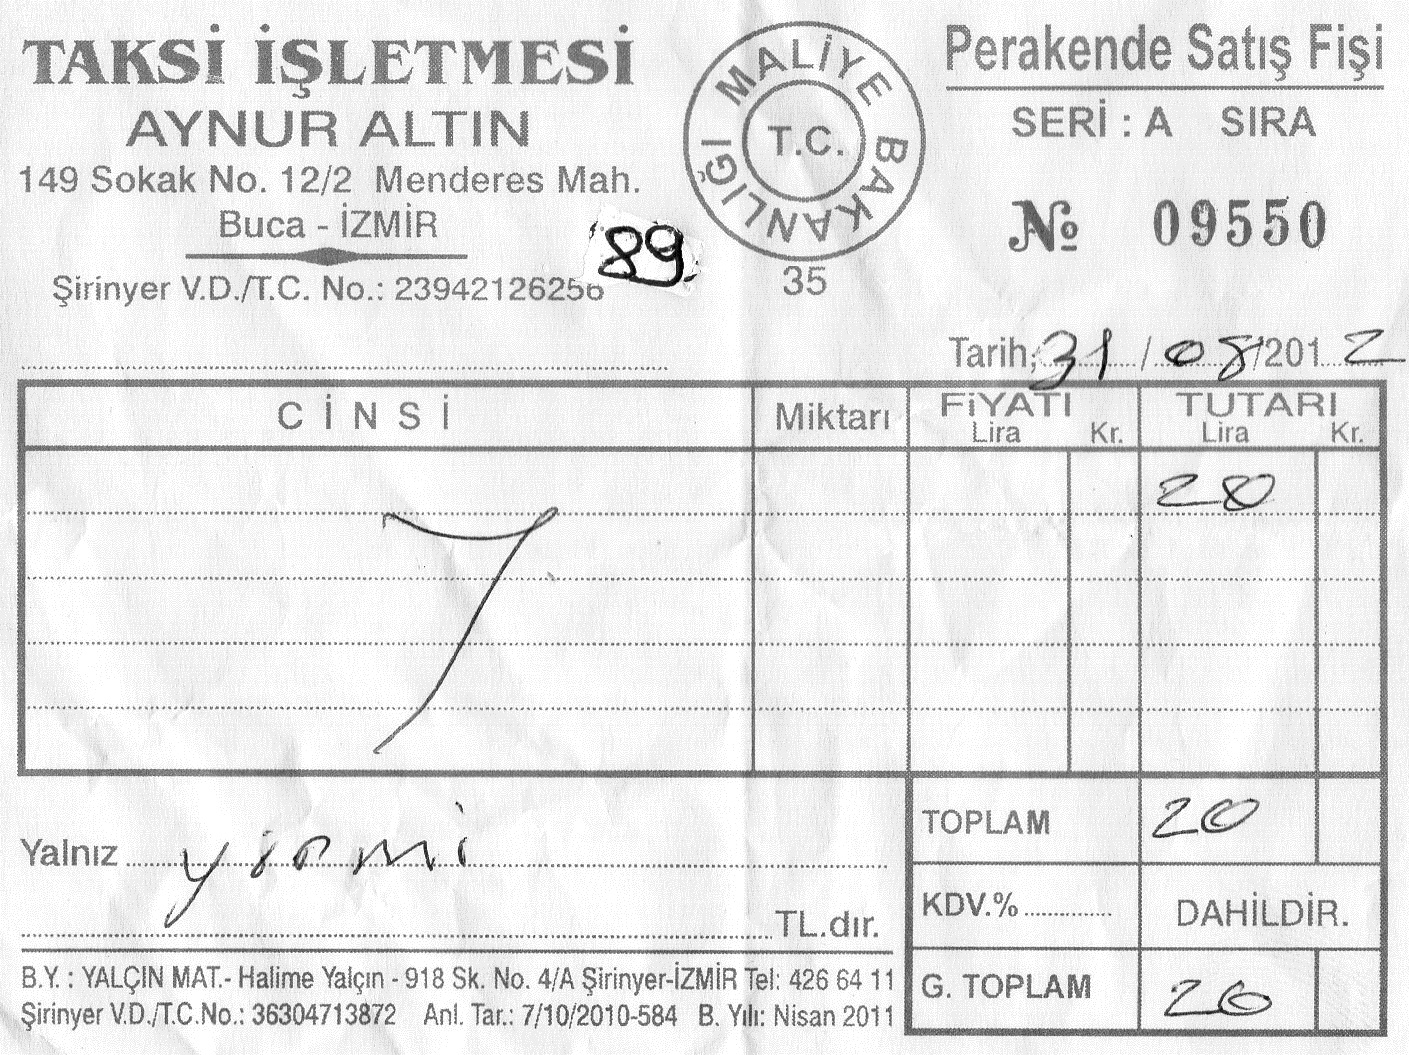 TAKSİ İŞLETMESİ
AYNUR ALTIN
149 Sokak No. 12/2 Menderes Mah.
Buca - İZMİR
Şirinyer V.D./T.C. No.: 23942126256
89
MALİYE BAKANLIĞI
T.C.
35
Perakende Satış Fişi
SERİ : A SIRA
№ 09550
Tarih: 31 / 08 / 2012
CİNSİ Miktarı FİYATI TUTARI
Lira Kr. Lira Kr.
20
TOPLAM 20
Yalnız yirmi
KDV.% DAHİLDİR.
TL.dır.
G. TOPLAM 20
B.Y. : YALÇIN MAT.- Halime Yalçın - 918 Sk. No. 4/A Şirinyer-İZMİR Tel: 426 64 11
Şirinyer V.D./T.C.No.: 36304713872 Anl. Tar.: 7/10/2010-584 B. Yılı: Nisan 2011